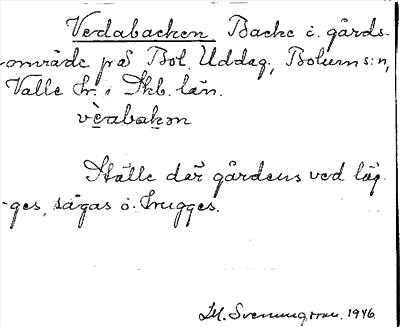 Vedabacken Backe i gårds-
område på Bol. Uddag, Bolums:n,
Valle hr. i Skb. län.
vèꞛabakən
Ställe där gårdens ved läg-
-ges, sågas o. hugges.
M. Svenungsson. 1946.